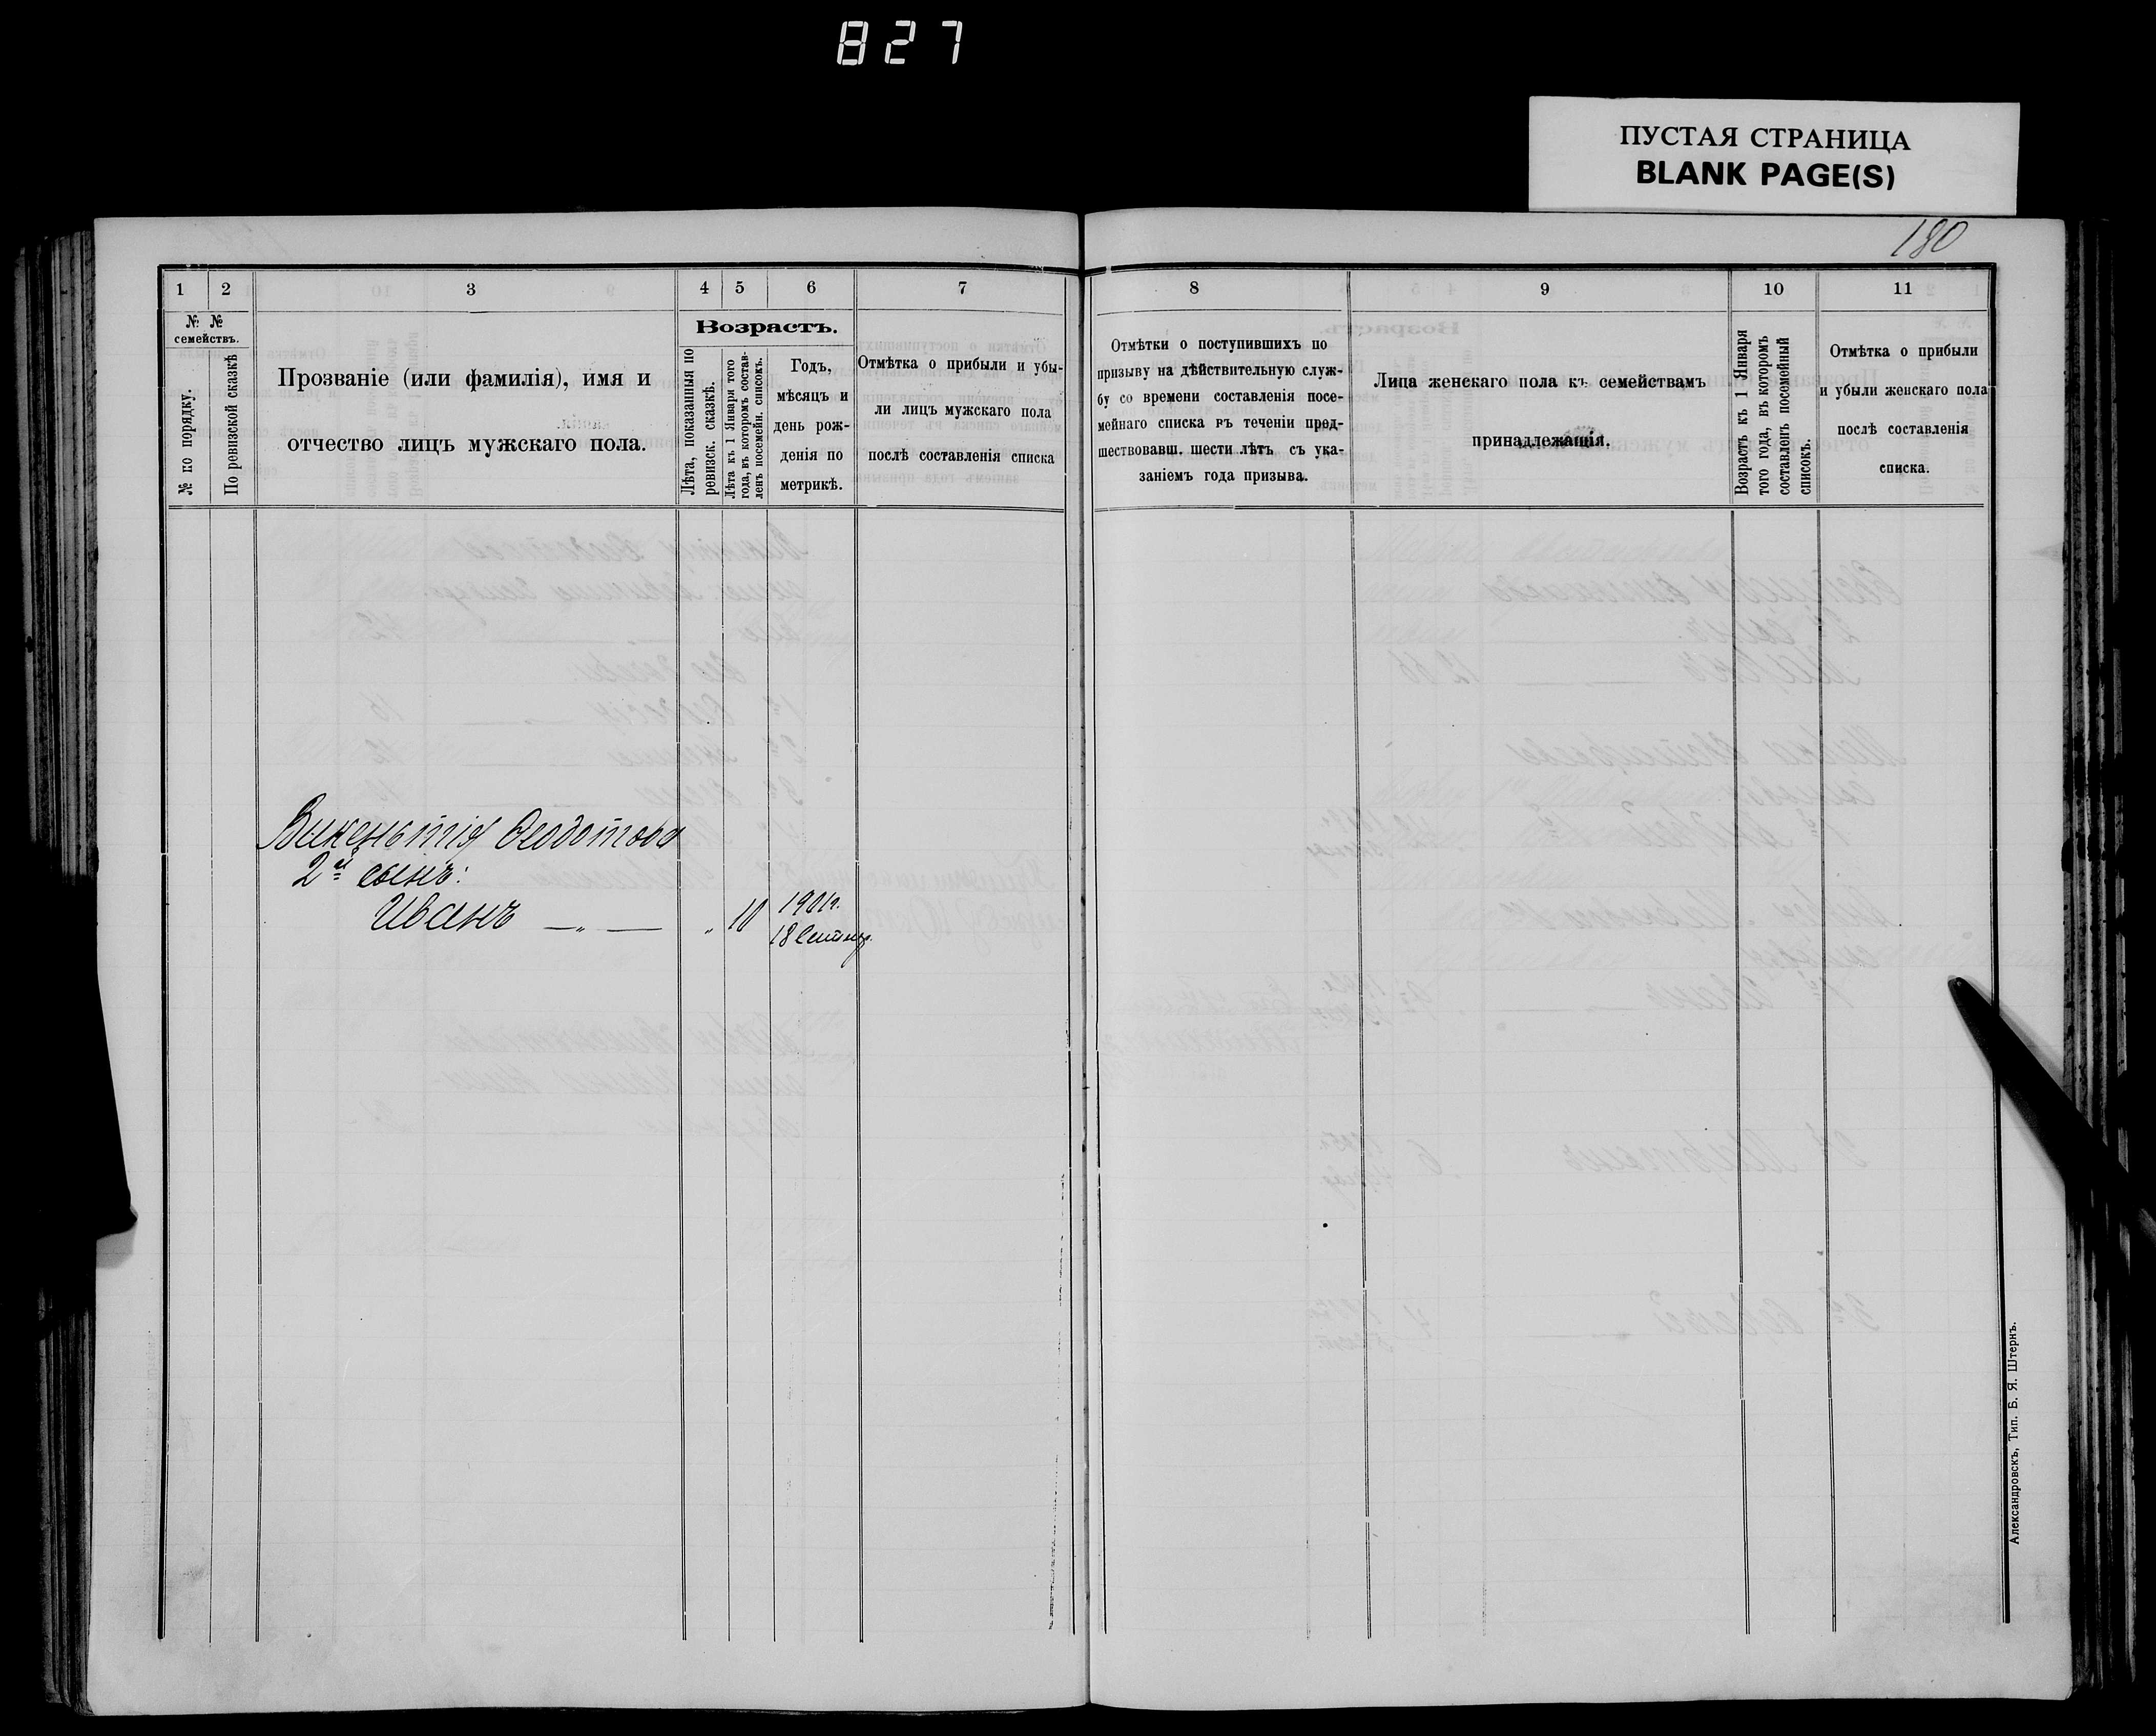 827
ПУСТАЯ СТРАНИЦА
BLANK PAGE(S)
180
1
2
3
4
5
6
7
№ № семействъ.
№ по порядку.
По ревизской сказкѣ
Прозваніе (или фамилія), имя и
отчество лицъ мужскаго пола.
Возрастъ.
Лѣта, показанныя по
ревизск. сказкѣ.
Лѣта къ 1 Января того
года, въ которомъ состав-
ленъ посемейн. списокъ.
Годъ,
мѣсяцъ и
день рож-
денія по
метрикѣ.
Отмѣтка о прибыли и убы-
ли лицъ мужскаго пола
послѣ составленія списка
Викентія Ѳеодотова
2й сынъ:
Иванъ — „ — „ 10 1901г.
18 Сентяр.
8
9
10
11
Отмѣтки о поступившихъ по
призыву на дѣйствительную служ-
бу со времени составленія посе-
мейнаго списка въ теченіи пред-
шествовавш. шести лѣтъ съ ука-
заніемъ года призыва.
Лица женскаго пола къ семействамъ
принадлежащія.
Возрастъ къ 1 Января
того года, въ которомъ
составленъ посемейный
списокъ.
Отмѣтка о прибыли
и убыли женскаго пола
послѣ составленія
списка.
Александровскъ, Тип. Б. Я. Штернъ.